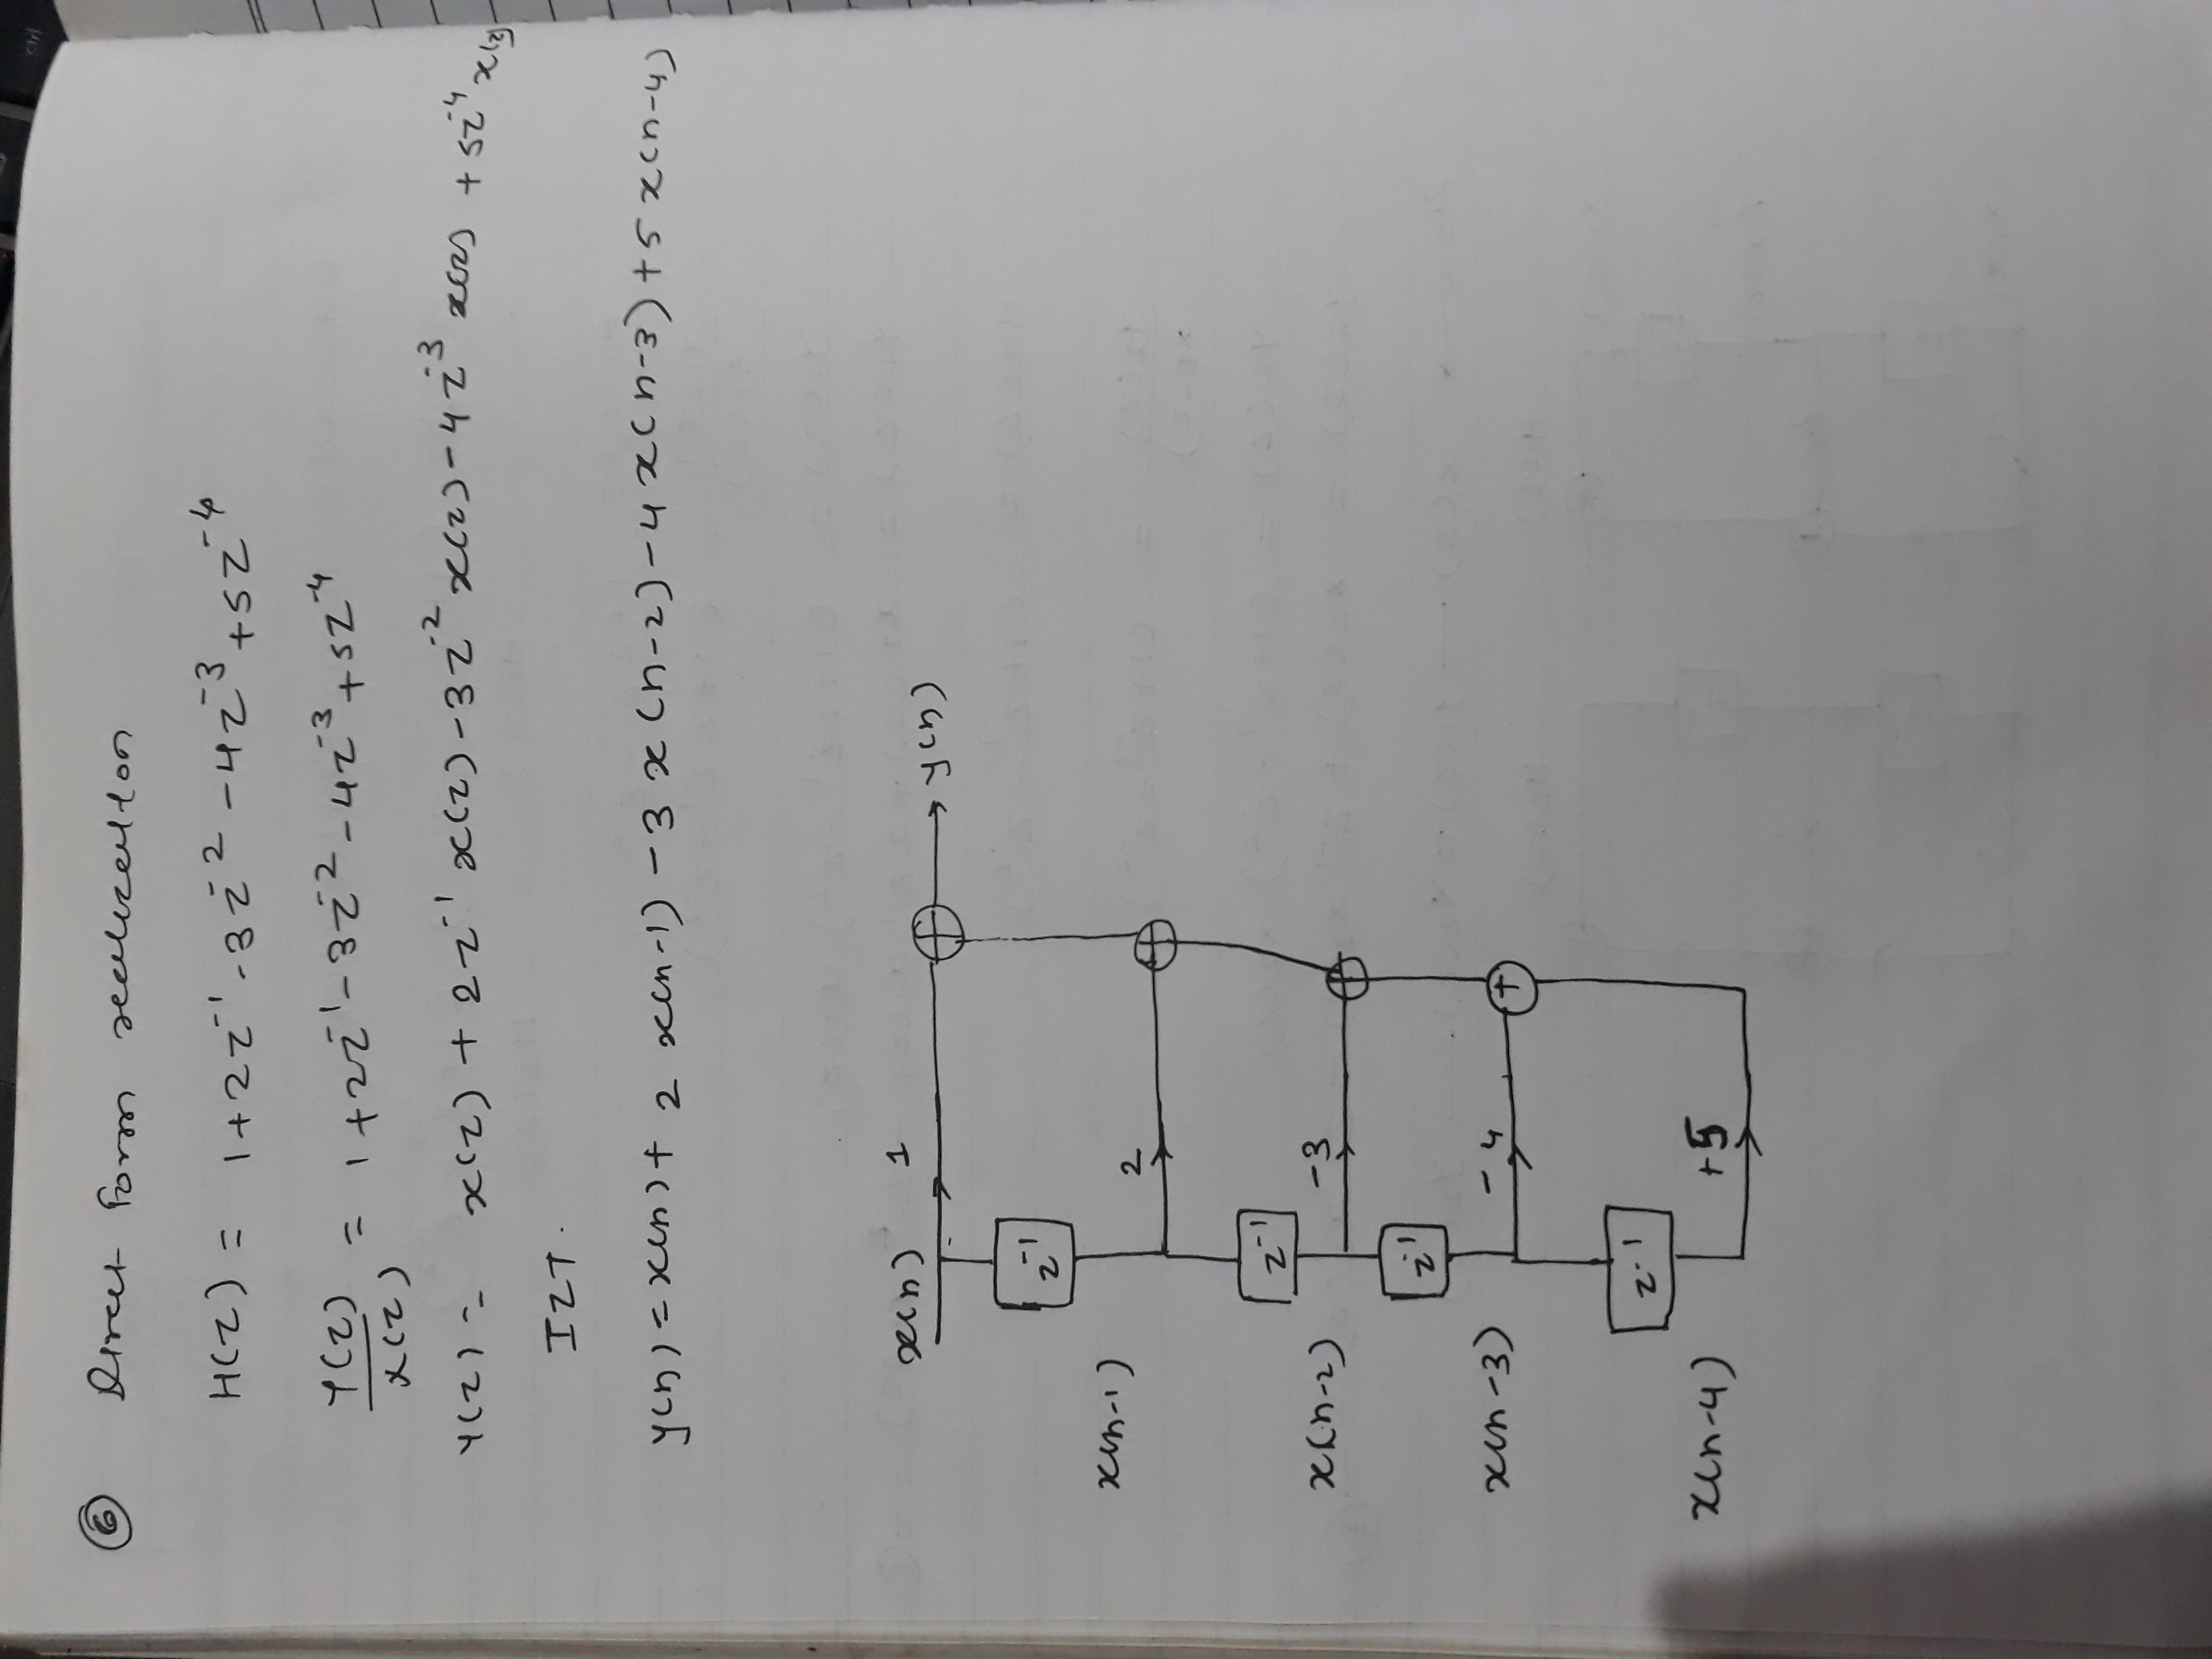 ⑥ Direct Form realization
H(Z) = 1+2z⁻¹-3z⁻²-4z⁻³+5z⁻⁴
Y(Z)/X(Z) = 1+2z⁻¹-3z⁻²-4z⁻³+5z⁻⁴
Y(Z) = x(z) + 2z⁻¹ x(z)-3z⁻² x(z)-4z⁻³ x(z) +5z⁻⁴ x(z)
IZT.
y(n)=x(n)+ 2 x(n-1)-3 x(n-2)-4 x(n-3)+5 x(n-4)
x(n) 1
y(n)
z⁻¹
x(n-1)
2
z⁻¹
x(n-2) -3
z⁻¹
x(n-3) -4
+
z-1
x(n-4) +5